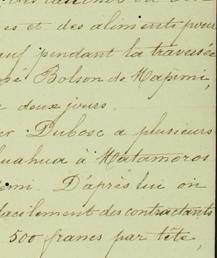 es et des aliments pour
auf pendant la traversée
Bolson de Mapimi,
deux jours.
er Dubosc a plusieurs
huahua à Matamoros
D'après lui on
facilement des contractants
500 francs par tête,